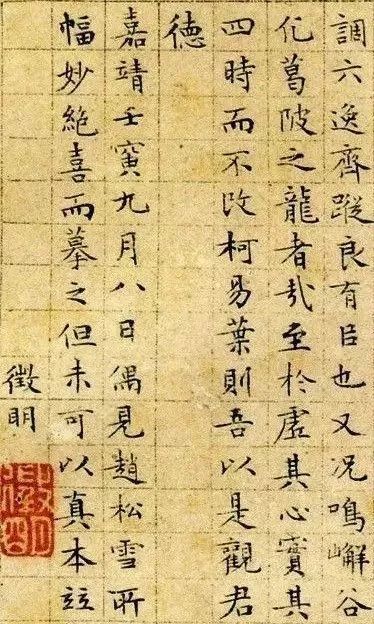 調六逸齊蹤良有㠯也又況鳴嶰谷
化葛陂之龍者哉至於虛其心實其
四時而不改柯易葉則吾以是觀君
德
嘉靖壬寅九月八日偶見趙松雪所
幅妙絕喜而摹之但未可以真本竝
徵明
徵明